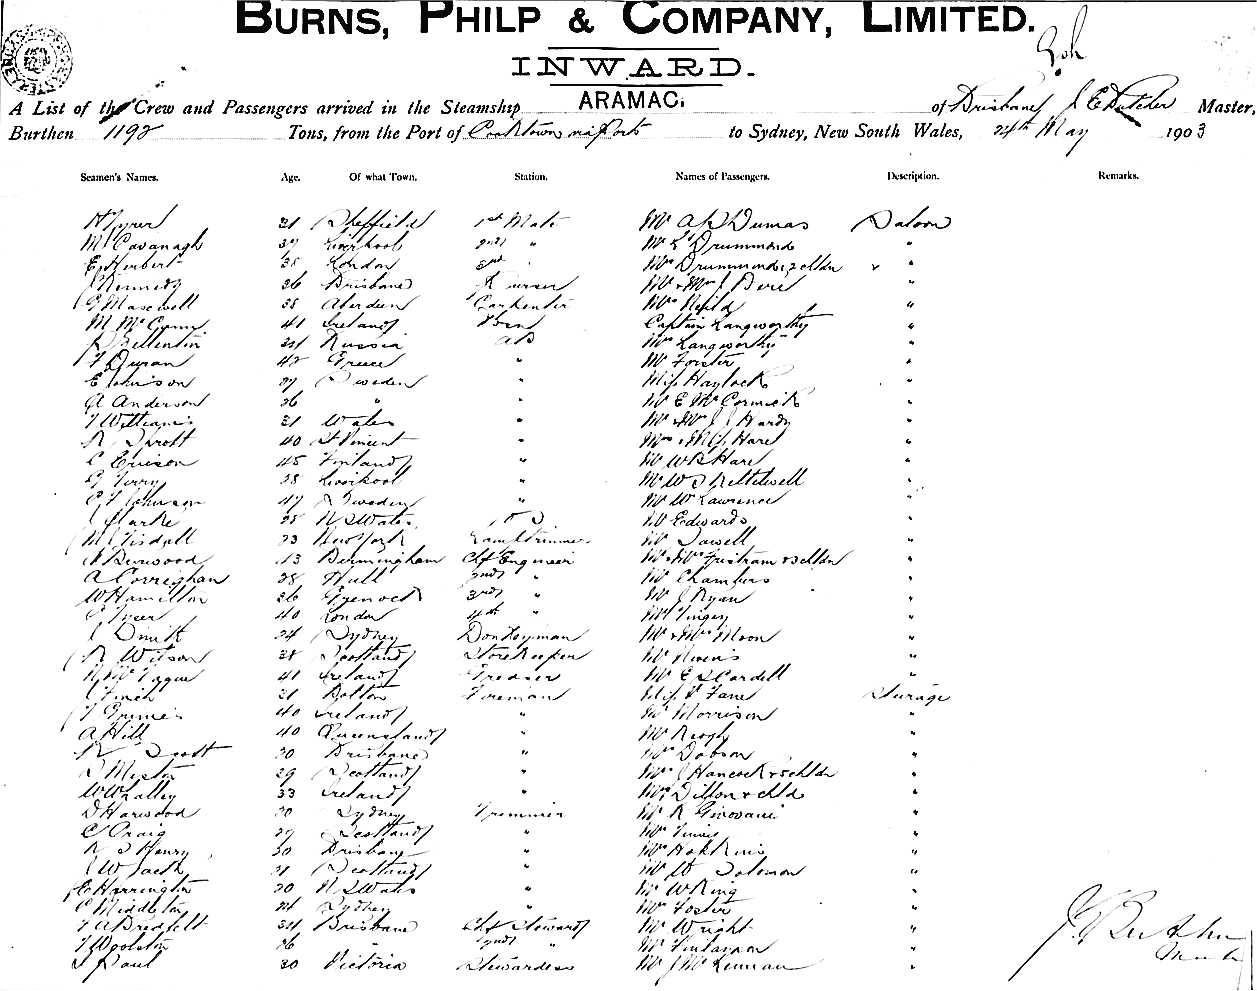 BURNS, PHILP & COMPANY, LIMITED.
INWARD.
A List of the Crew and Passengers arrived in the Steamship ARAMAC. of Brisbane J E Butcher Master,
Burthen 1192 Tons, from the Port of Cooktown via Ports to Sydney, New South Wales, 24th May 1903
Seamen's Names. Age. Of what Town. Station. Names of Passengers. Description. Remarks.
31 Sheffield 1st Mate Mr A R Dumas Saloon
M Cavanagh 37 Liverpool 2nd " Mr L Drummond "
E Herbert 38 London 3rd " Mrs Drummond & 2 chldn "
J Kennedy 26 Brisbane Purser Mr & Mrs J Bere "
G Maxwell 38 Aberdeen Carpenter Mrs Neild "
M McCann 41 Ireland Captain Langworthy "
Russia AB Mrs Langworthy "
T Duran 42 Greece " Mr Forster "
E Johnson 27 Sweden " Miss Haylock "
A Anderson 26 " " Mr E McCormick "
T Williams 31 Wales " Mr & Mrs J J Hardy "
R Sprott 40 St Vincent " Mrs & M Hare "
C Ericson 45 Finland " Mr W B Hare "
G Terry 28 Liverpool " Mr W S Kettlewell "
C F Johnson 47 Sweden " Mr W Lawrence "
J Clarke 25 N S Wales Mr Edwards "
M Tisdall 23 New York Lamptrimmer Mr Dowell "
Burwood Birmingham Chf Engineer Mr & Mrs Tristram & chldn "
A Corrighan 28 Hull 2nd " Mr Chambers "
W Hamilton 26 Greenock 3rd " Mr J Ryan "
40 London 4th " Mr Tingey "
J Smith 24 Sydney Donkeyman Mr & Mrs Moon "
R Wilson 38 Scotland Storekeeper Mr Nivens "
McTague 41 Ireland Greaser Mr E S Cardell "
J Finch 31 Bolton Fireman Miss F Fane Steerage
T Grimes 40 Ireland " Mr Morrison "
A Hill 40 Queensland " Mr Keogh "
R Scott 30 Brisbane " Mr Dobson "
S Meston 29 Scotland " Mrs J Hancock & 5 chldn "
W Whalley 33 Ireland " Mrs Dillon & chld "
D Harwood 20 Sydney Trimmer Mr R Giovani "
C Craig 29 Scotland " "
R S Henry 30 Brisbane " Mrs Hopkins "
J W Jack 21 Scotland " Mr W Soloman "
E Harrington 20 N S Wales " Mr W King "
C Middleton 24 Sydney " Mr Foster "
T A Bredfelt 34 Brisbane Chf Steward Mr Wright "
T Woolston 26 " 2nd " Mr Finlayson "
S Paul 30 Victoria Stewardess Mr J McLennan "
J E Butcher
Master